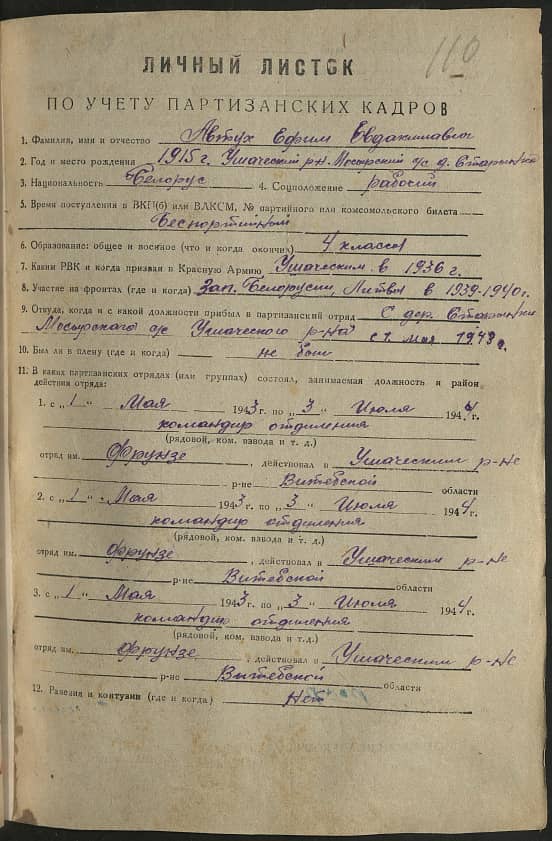 110
ЛИЧНЫЙ ЛИСТОК
ПО УЧЕТУ ПАРТИЗАНСКИХ КАДРОВ
1. Фамилия, имя и отчество Автух Ефим
2. Год и место рождения 1915 г. Ушачский р-н. с/с д.
3. Национальность Белорус 4. Соцположение рабочий
5. Время поступления в ВКП(б) или ВЛКСМ, № партийного или комсомольского билета
Беспортийный
6. Образование: общее и военное (что и когда окончил) 4 класса
7. Каким РВК и когда призван в Красную Армию Ушаческим в 1936 г.
8. Участие на фронтах (где и когда) Зап. Белорусии, Литвы в 1939-1940 г.
9. Откуда, когда и с какой должности прибыл в партизанский отряд С дер.
с/с Ушаческого р-на с 1 мая 1943 г.
10. Был ли в плену (где и когда) не был
11. В каких партизанских отрядах (или группах) состоял, занимаемая должность и район
действия отряда:
1. с „1" Мая 1943 г. по „3" Июля 1944 г.
командир отдиления
(рядовой, ком. взвода и т. д.)
отряд им. Фрунзе, действовал в Ушаческим р-не
р-не Витебской области
2. с „1" Мая 1943 г. по „3" Июля 1944 г.
командир отдиления
(рядовой, ком. взвода и т. д.)
отряд им. Фрунзе, действовал в Ушаческим р-не
р-не Витебской области
3. с „1" Мая 1943 г. по „3" Июля 1944 г.
командир отдиления
(рядовой, ком. взвода и т.д.)
отряд им. Фрунзе, действовал в Ушаческим р-не
р-не Витебской области
12. Ранения и контузии (где и когда) Нет